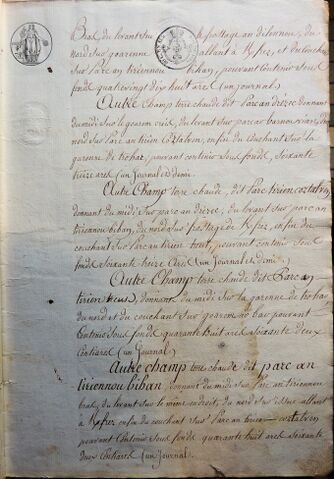 Bras, du levant sur le pattage an dilennou, du
nord sur goarenne allant à Kfez, et du couchant
sur Parc an tiriennou bihan, pouvant contenir sous
fonds quatrevingt dix huit arcs (un journal)
Autre Champ terre chaude dit Parc an drézec donnant
du midi sur le goarem creis, du levant sur parc ar
nord sur Parc an tirien Coztabren, enfin du couchant sur la
garenne de trobac, pouvant contenir sous fonds, soixante
treize ares (un journal et demi.
Autre Champ terre chaude, dit Parc tirien Coztabren,
donnant du midi sur parc an drézec, du levant sur parc an
tiriennou bihan, du nord sur frostage de Kfez, enfin du
couchant sur Parc an tirien tout, pouvant contenir sous
fonds soixante treize ares (un journal et demi.
Autre Champ terre chaude dit Parc an
tirien teus, donnant du midi sur la garenne de trobac
du nord et du couchant sur goarem ar bac pouvant
contenir sous fonds quarante huit ares soixante deux
centiares (un journal)
Autre champ terre chaude dit parc an
tiriennou bihan donnant du midi sur parc an tiriennou
bras, du levant sur le même endroit, du nord sur issue allant
à Kfez enfin du couchant sur Parc an tirien coztabren
pouvant contenir sous fonds quarante huit ares soixante
deux centiares (un journal